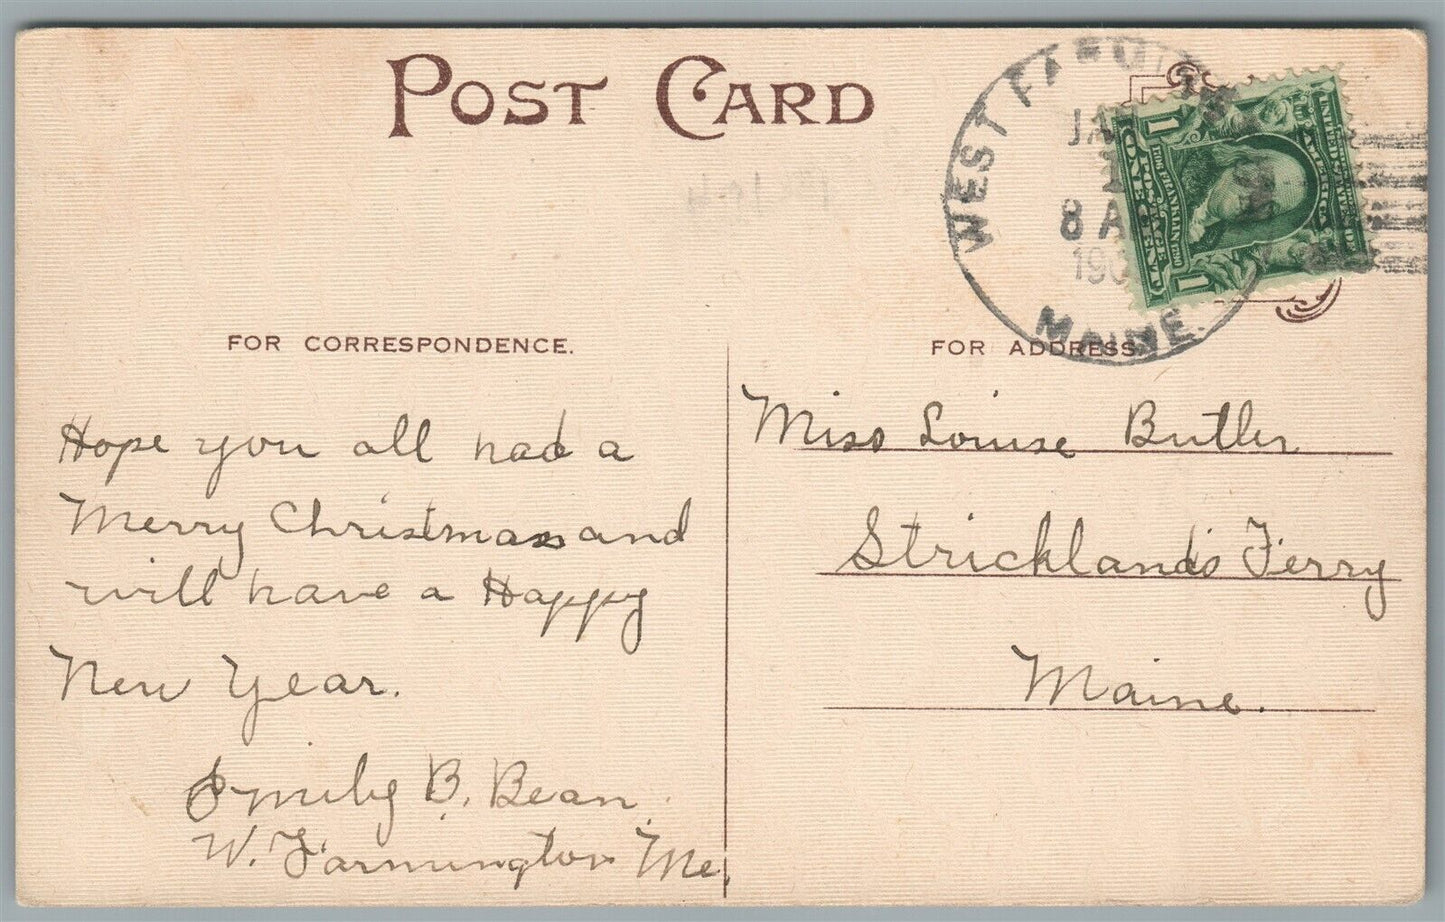 POST CARD
WEST FA
JA
8 A
190
MAINE.
1 1
FOR CORRESPONDENCE.
FOR ADDRESS.
Hope you all had a
Merry Christmas and
will have a Happy
New Year.
Emily B. Bean.
W. Farmington Me.
Miss Louise Butler
Strickland's Ferry
Maine.